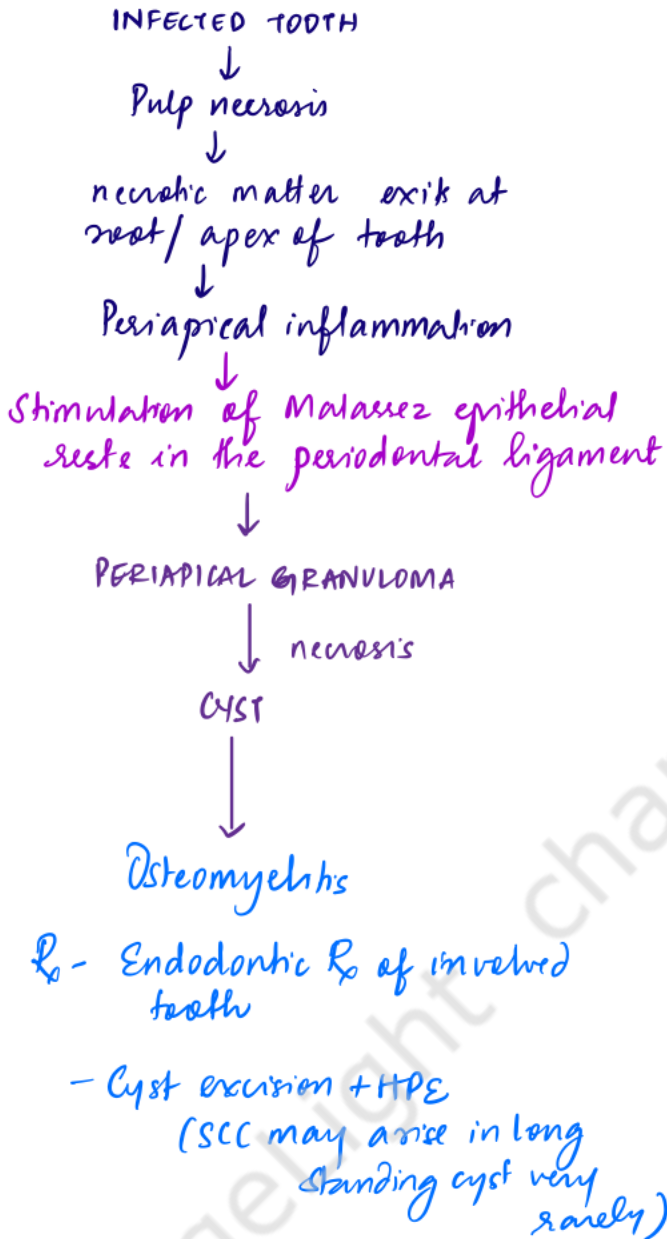 INFECTED TOOTH
↓
Pulp necrosis
↓
necrotic matter exits at
root/ apex of tooth
↓
Periapical inflammation
↓
Stimulation of Malassez epithelial
rests in the periodontal ligament
↓
PERIAPICAL GRANULOMA
↓ necrosis
CYST
↓
Osteomyelitis
Rx - Endodontic Rx of involved
tooth
- Cyst excision + HPE
(SCC may arise in long
standing cyst very
rarely)